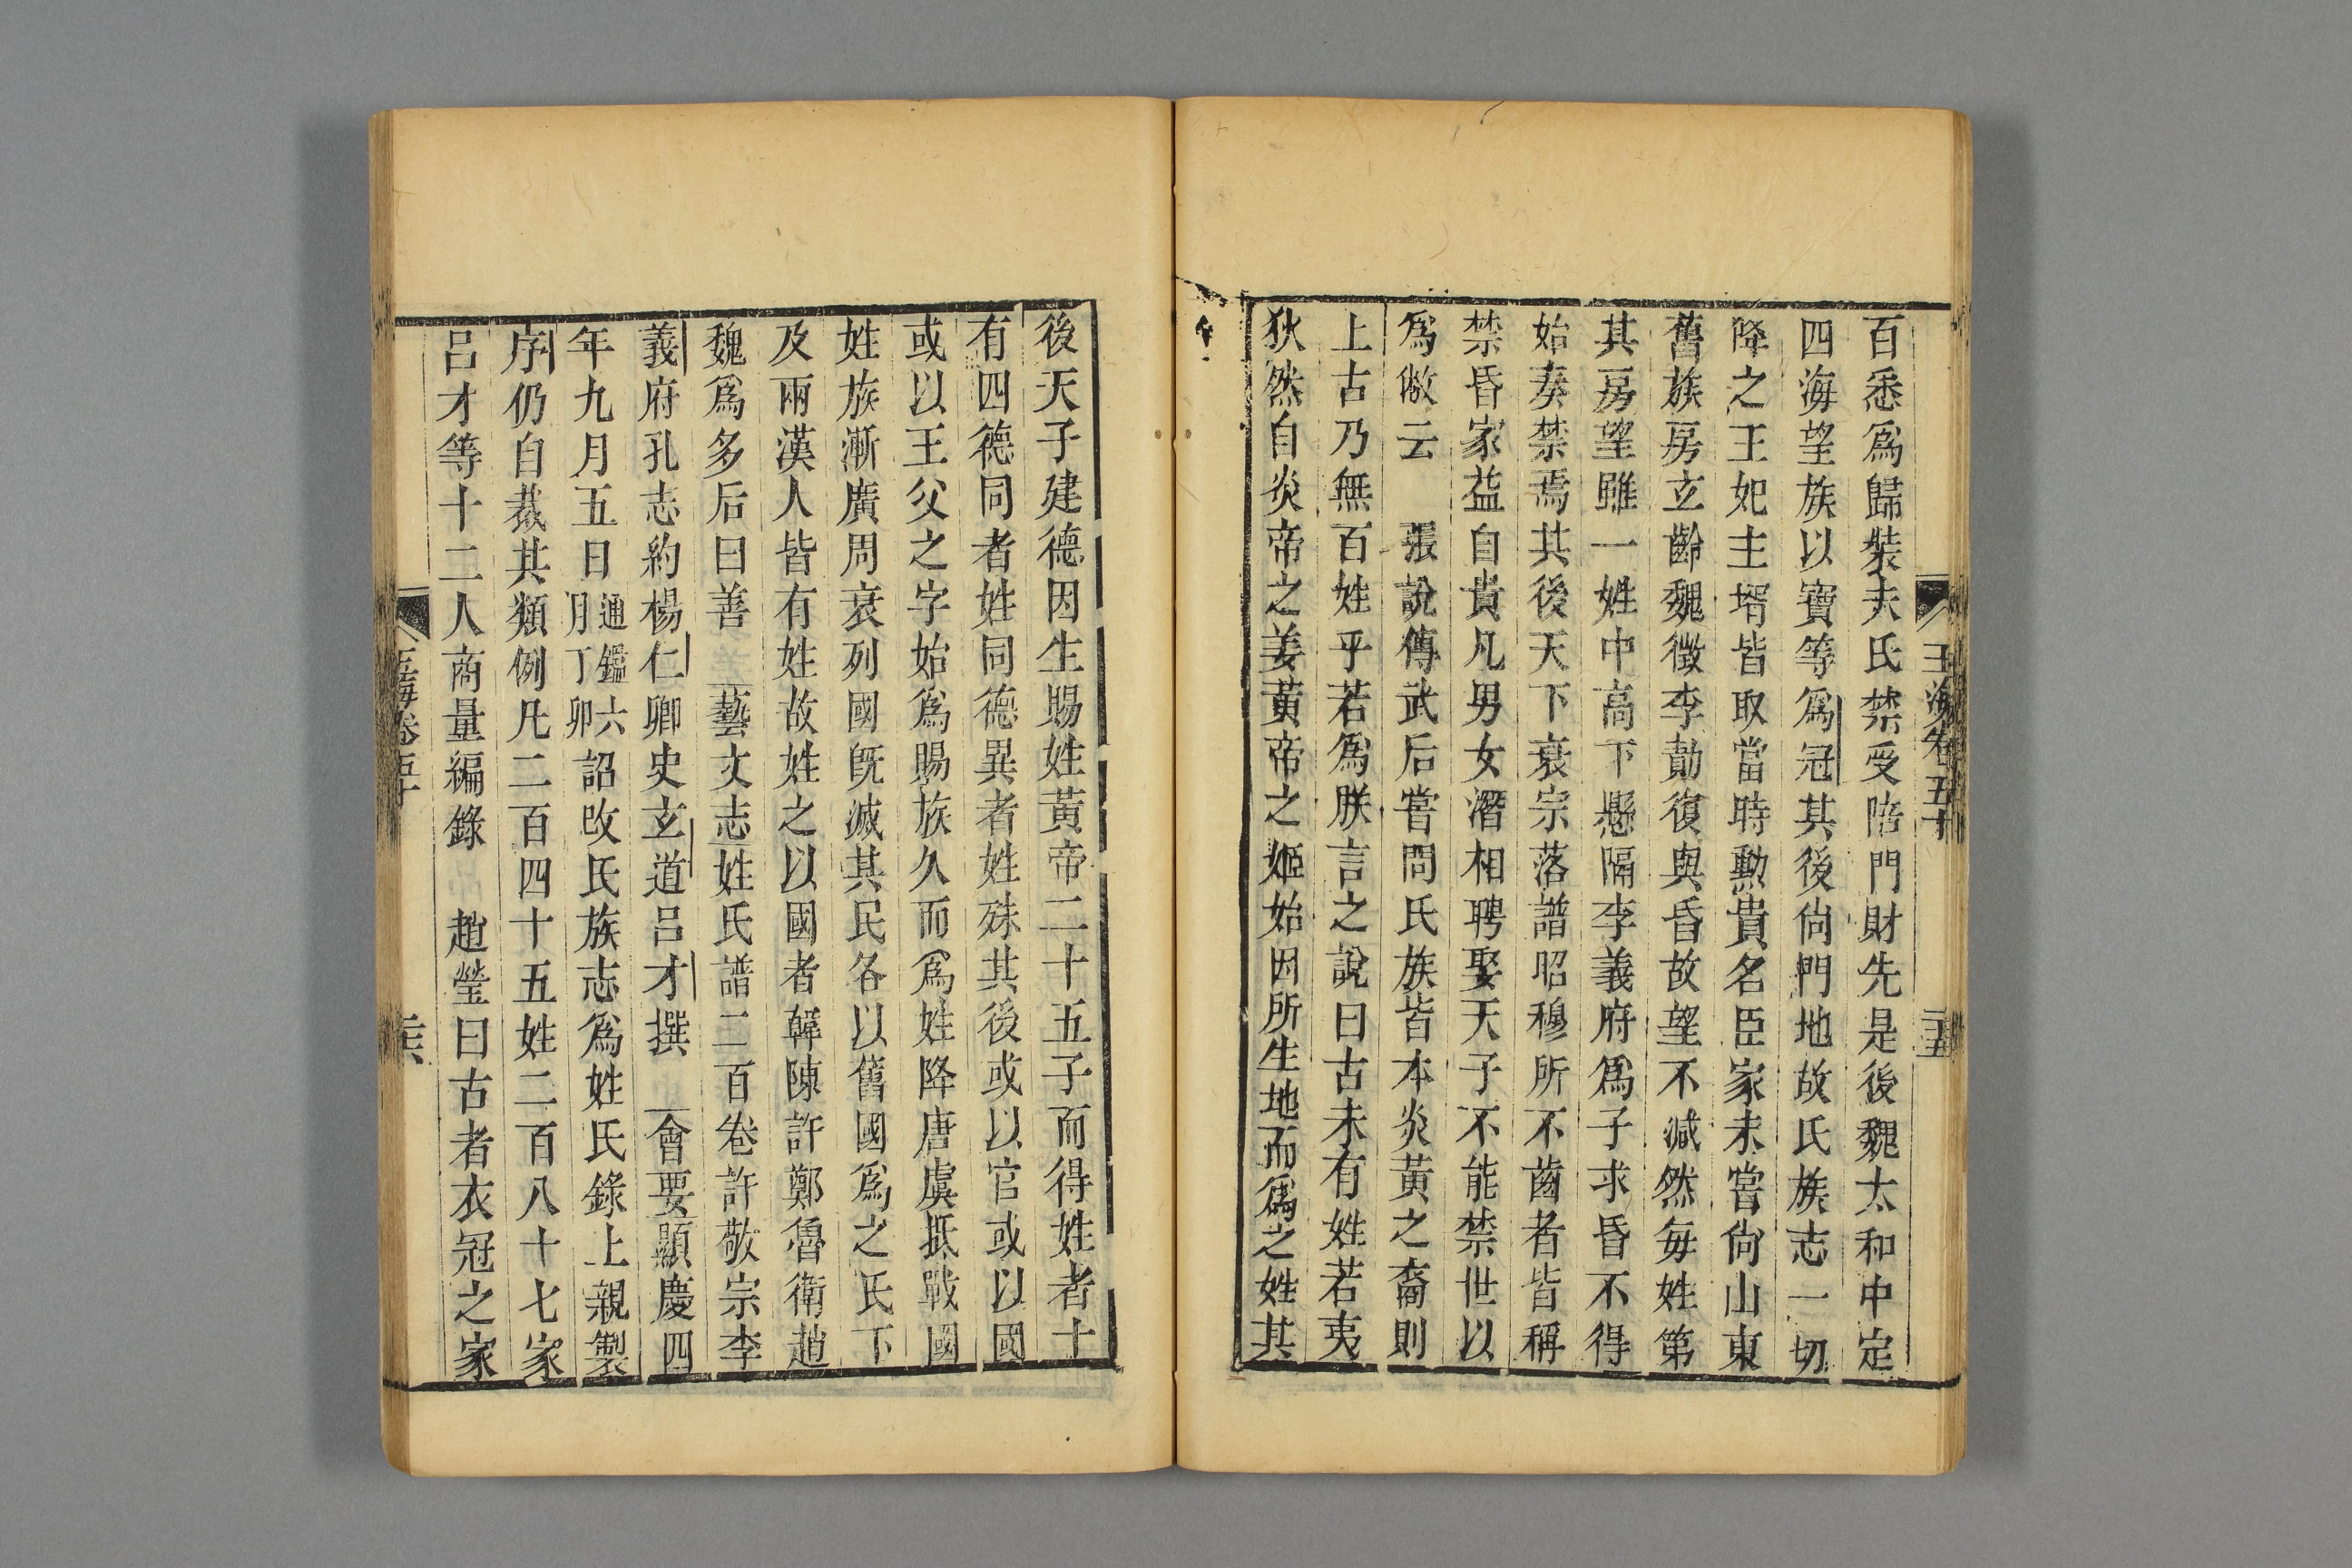 玉海卷五十
二十五
百悉爲歸裝夫氏禁受陪門財先是後魏太和中定
四海望族以寶等爲冠其後尙門地故氏族志一切
降之王妃主壻皆取當時勲貴名臣家未嘗尙山東
舊族房玄齡魏徵李勣復與昏故望不減然每姓第
其房望雖一姓中高下懸隔李義府爲子求昏不得
始奏禁焉其後天下衰宗落譜昭穆所不齒者皆稱
禁昏家益自貴凡男女潛相聘娶天子不能禁世以
爲敝云　張說傳武后嘗問氏族皆本炎黃之裔則
上古乃無百姓乎若爲朕言之說曰古未有姓若夷
狄然自炎帝之姜黃帝之姬始因所生地而爲之姓其
後天子建德因生賜姓黃帝二十五子而得姓者十
有四德同者姓同德異者姓殊其後或以官或以國
或以王父之字始爲賜族久而爲姓降唐虞抵戰國
姓族漸廣周衰列國旣滅其民各以舊國爲之氏下
及兩漢人皆有姓故姓之以國者韓陳許鄭魯衛趙
魏爲多后曰善　藝文志姓氏譜二百卷許敬宗李
義府孔志約楊仁卿史玄道呂才撰　會要顯慶四
年九月五日通鑑六月丁卯詔改氏族志爲姓氏錄上親製
序仍自裁其類例凡二百四十五姓二百八十七家
呂才等十二人商量編錄　趙瑩曰古者衣冠之家
玉海卷五十
二十六